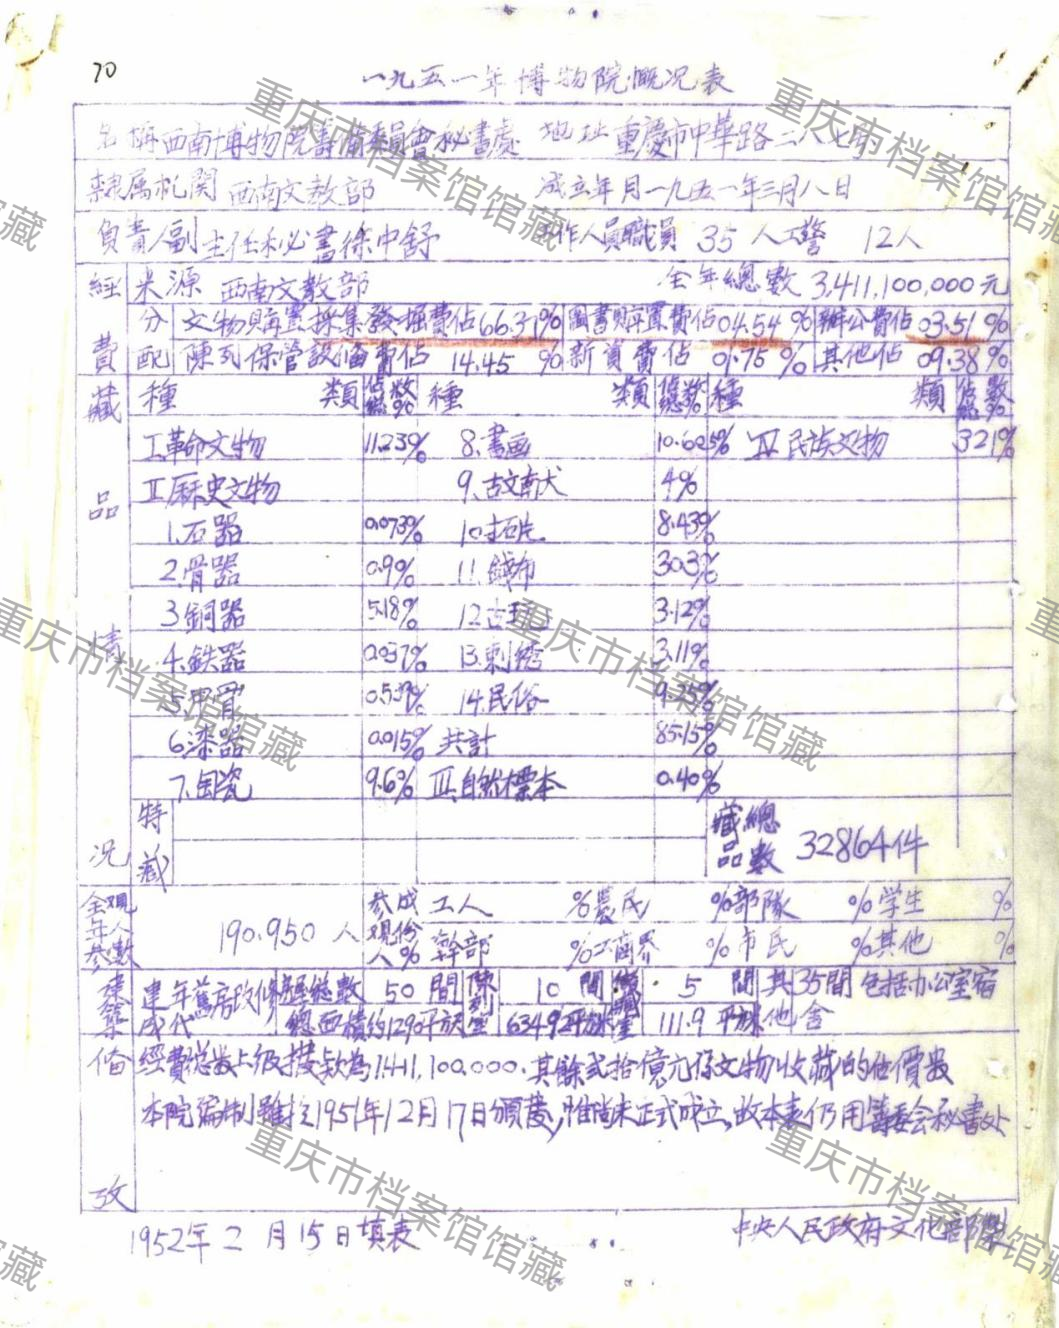 70
一九五一年博物院概况表
名稱 西南博物院籌備委員會秘書處 地址 重慶市中華路二八七号
隸属机関 西南文教部 成立年月 一九五一年三月八日
負責人 副主任秘書徐中舒 工作人員職員 35 人工警 12人
經費 来源 西南文教部 全年總數 3,411,100,000元
分配 文物購置採集發掘費佔66.37% 圖書購置費佔04.54% 辦公費佔03.51%
陳列保管設備費佔 14.45 % 新資費佔 01.75 % 其他佔 09.38%
藏品情况 種類 佔總數% 種類 佔總數% 種類 佔總數%
I.革命文物 11.23% 8.書画 10.605% IV 民族文物 3.21%
II.厤史文物 9.古文献 4%
1.石器 0.073% 10.拓片 8.43%
2.骨器 0.9% 11.錢布 30.3%
3.銅器 5.18% 12.古玉 3.12%
4.鉄器 0.037% 13.刺绣 3.11%
5.甲骨 0.53% 14.民俗 9.25%
6.漆器 0.015% 共計 85.15%
7.陶瓷 9.6% III.自然標本 0.40%
特藏 藏品總數 32864件
全年观人参數 190.950 人 参观人成份% 工人 %農民 %部隊 %学生 %
幹部 %工商界 %市民 %其他 %
建築 建成年代 舊房改修 總数 50 間 陳列室 10 間 5 間 其他 35間 包括办公室宿舍
總面積約1290平方 6349平 111.9 平
备攷 經費總数上级撥款為1,411,100,000.其餘弍拾億元係文物收藏的估價数
本院編制雖於1951年12月17日頒發,惟尚未正式成立,故本表仍用籌委会秘書处
1952年 2 月 15 日 填表 中央人民政府文化部製
重庆市档案馆馆藏
重庆市档案馆馆藏
重庆市档案馆馆藏
重庆市档案馆馆藏
重庆市档案馆馆藏
重庆市档案馆馆藏